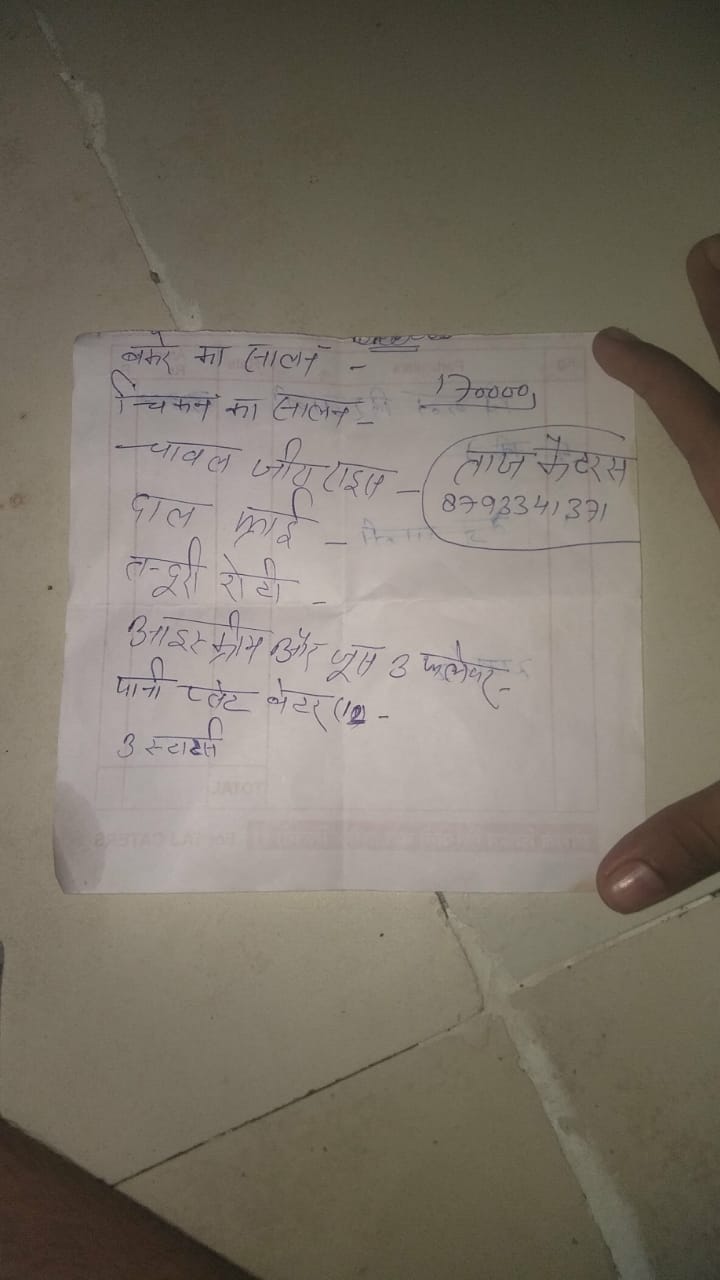 बकरे का सालन -
170000
चिकन का सालन -
चावल जीरा राइस -
ताज केटरस
8793341371
दाल फ्राई -
तन्दूरी रोटी -
आइस्क्रीम और जूस 3 फ्लेवर -
पानी प्लेट वेटर -
3 स्टार्टर्स
TOTAL
For TAJ CATERS